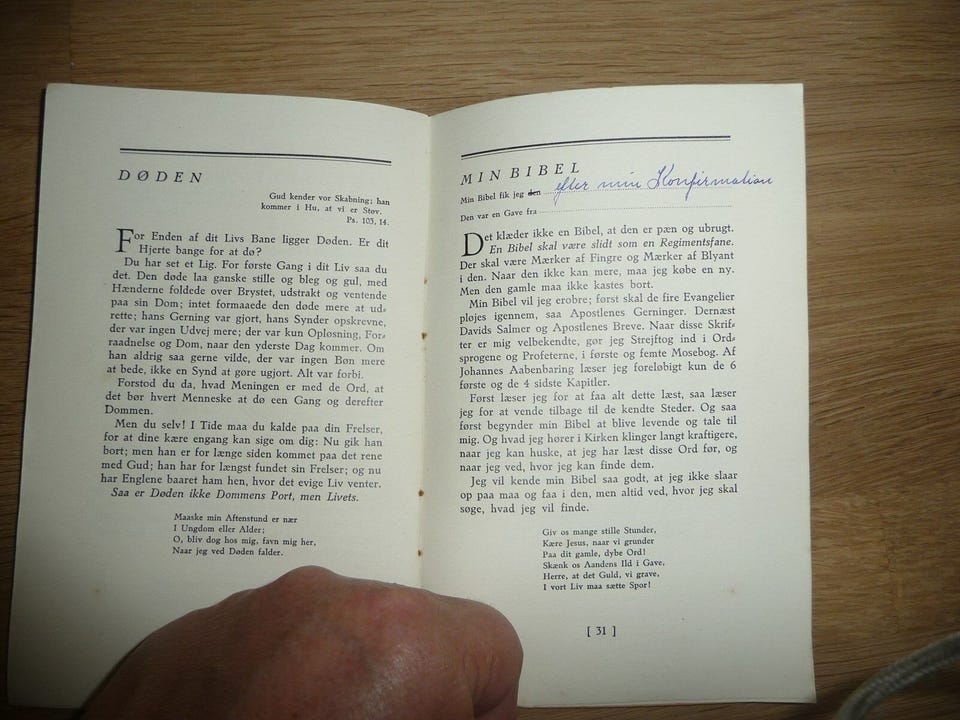 DØDEN
Gud kender vor Skabning; han
kommer i Hu, at vi er Støv.
Ps. 103, 14.
For Enden af dit Livs Bane ligger Døden. Er dit
Hjerte bange for at dø?
Du har set et Lig. For første Gang i dit Liv saa du
det. Den døde laa ganske stille og bleg og gul, med
Hænderne foldede over Brystet, udstrakt og ventende
paa sin Dom; intet formaaede den døde mere at ud-
rette; hans Gerning var gjort, hans Synder opskrevne,
der var ingen Udvej mere; der var kun Opløsning, For-
raadnelse og Dom, naar den yderste Dag kommer. Om
han aldrig saa gerne vilde, der var ingen Bøn mere
at bede, ikke en Synd at gøre ugjort. Alt var forbi.
Forstod du da, hvad Meningen er med de Ord, at
det bør hvert Menneske at dø een Gang og derefter
Dommen.
Men du selv! I Tide maa du kalde paa din Frelser,
for at dine kære engang kan sige om dig: Nu gik han
bort; men han er for længe siden kommet paa det rene
med Gud; han har for længst fundet sin Frelser; og nu
har Englene baaret ham hen, hvor det evige Liv venter.
Saa er Døden ikke Dommens Port, men Livets.
Maaske min Aftenstund er nær
I Ungdom eller Alder;
O, bliv dog hos mig, favn mig her,
Naar jeg ved Døden falder.
MIN BIBEL
Min Bibel fik jeg den efter min Konfirmation
Den var en Gave fra
Det klæder ikke en Bibel, at den er pæn og ubrugt.
En Bibel skal være slidt som en Regimentsfane.
Der skal være Mærker af Fingre og Mærker af Blyant
i den. Naar den ikke kan mere, maa jeg købe en ny.
Men den gamle maa ikke kastes bort.
Min Bibel vil jeg erobre; først skal de fire Evangelier
pløjes igennem, saa Apostlenes Gerninger. Dernæst
Davids Salmer og Apostlenes Breve. Naar disse Skrif-
ter er mig velbekendte, gør jeg Strejftog ind i Ord-
sprogene og Profeterne, i første og femte Mosebog. Af
Johannes Aabenbaring læser jeg foreløbigt kun de 6
første og de 4 sidste Kapitler.
Først læser jeg for at faa alt dette læst, saa læser
jeg for at vende tilbage til de kendte Steder. Og saa
først begynder min Bibel at blive levende og tale til
mig. Og hvad jeg hører i Kirken klinger langt kraftigere,
naar jeg kan huske, at jeg har læst disse Ord før, og
naar jeg ved, hvor jeg kan finde dem.
Jeg vil kende min Bibel saa godt, at jeg ikke slaar
op paa maa og faa i den, men altid ved, hvor jeg skal
søge, hvad jeg vil finde.
Giv os mange stille Stunder,
Kære Jesus, naar vi grunder
Paa dit gamle, dybe Ord!
Skænk os Aandens Ild i Gave,
Herre, at det Guld, vi grave,
I vort Liv maa sætte Spor!
[ 31 ]